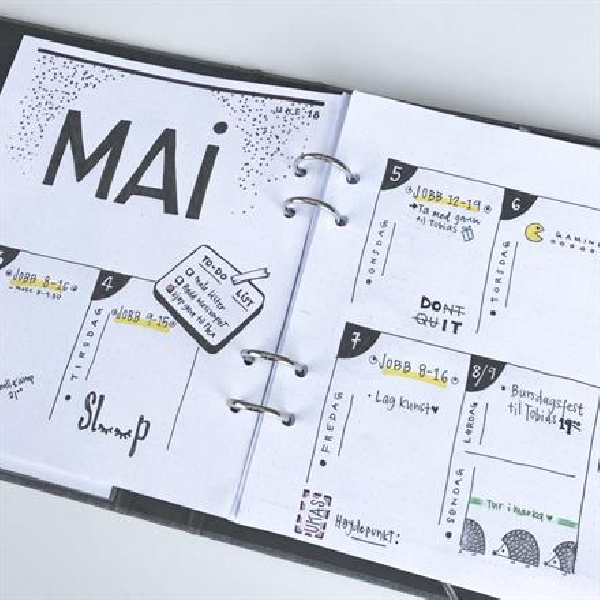 UKE 18
MAi
JOBB 8-16
4
TIRSDAG
JOBB 9-15
Sl....p
TO-DO
LiST
5
ONSDAG
JOBB 12-19
→Ta med gave
til Tobias
DONT
QUIT
6
TORSDAG
GAMING
7
FREDAG
JOBB 8-16
• Lag kunst♥
8/9
LØRDAG
• Bursdagsfest
til Tobias
SØNDAG
Tur i marka ♥
UKAS
Høydepunkt: